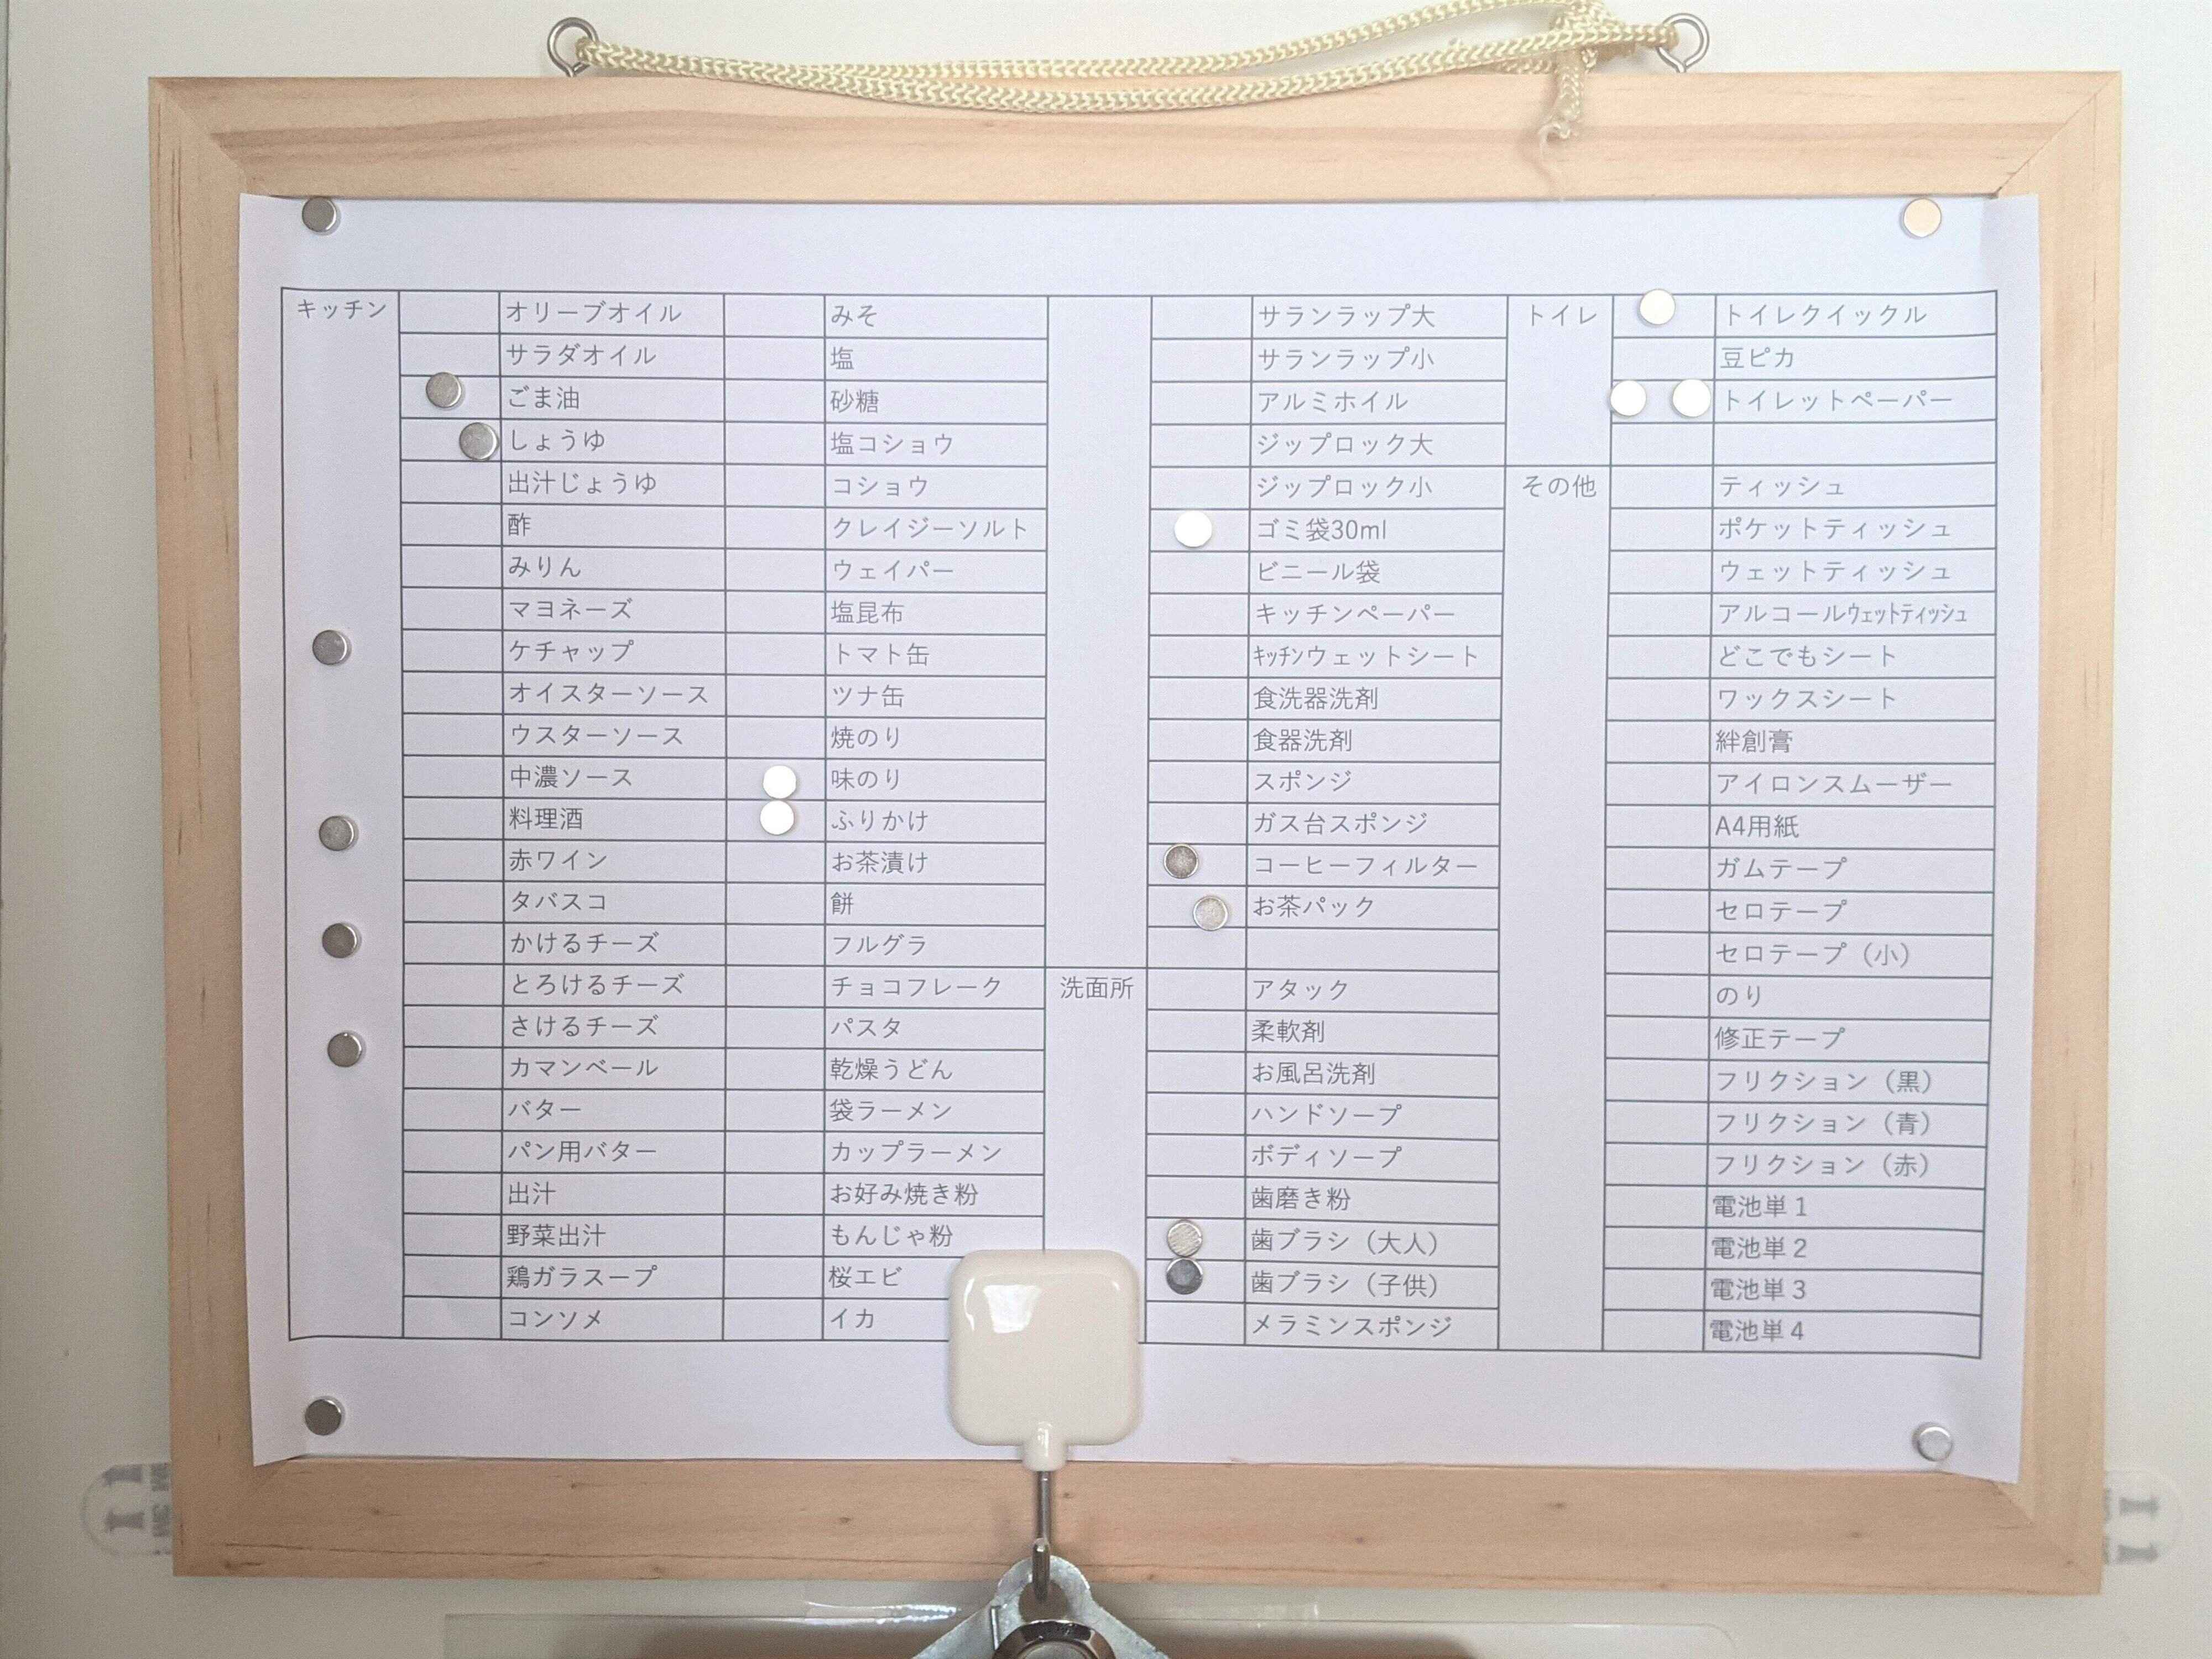 キッチン
オリーブオイル
サラダオイル
ごま油
しょうゆ
出汁じょうゆ
酢
みりん
マヨネーズ
ケチャップ
オイスターソース
ウスターソース
中濃ソース
料理酒
赤ワイン
タバスコ
かけるチーズ
とろけるチーズ
さけるチーズ
カマンベール
バター
パン用バター
出汁
野菜出汁
鶏ガラスープ
コンソメ
みそ
塩
砂糖
塩コショウ
コショウ
クレイジーソルト
ウェイパー
塩昆布
トマト缶
ツナ缶
焼のり
味のり
ふりかけ
お茶漬け
餅
フルグラ
チョコフレーク
パスタ
乾燥うどん
袋ラーメン
カップラーメン
お好み焼き粉
もんじゃ粉
桜エビ
イカ
サランラップ大
サランラップ小
アルミホイル
ジップロック大
ジップロック小
ゴミ袋30ml
ビニール袋
キッチンペーパー
ｷｯﾁﾝウェットシート
食洗器洗剤
食器洗剤
スポンジ
ガス台スポンジ
コーヒーフィルター
お茶パック
洗面所
アタック
柔軟剤
お風呂洗剤
ハンドソープ
ボディソープ
歯磨き粉
歯ブラシ（大人）
歯ブラシ（子供）
メラミンスポンジ
トイレ
トイレクイックル
豆ピカ
トイレットペーパー
その他
ティッシュ
ポケットティッシュ
ウェットティッシュ
アルコールｳｪｯﾄﾃｨｯｼｭ
どこでもシート
ワックスシート
絆創膏
アイロンスムーザー
A4用紙
ガムテープ
セロテープ
セロテープ（小）
のり
修正テープ
フリクション（黒）
フリクション（青）
フリクション（赤）
電池単１
電池単２
電池単３
電池単４